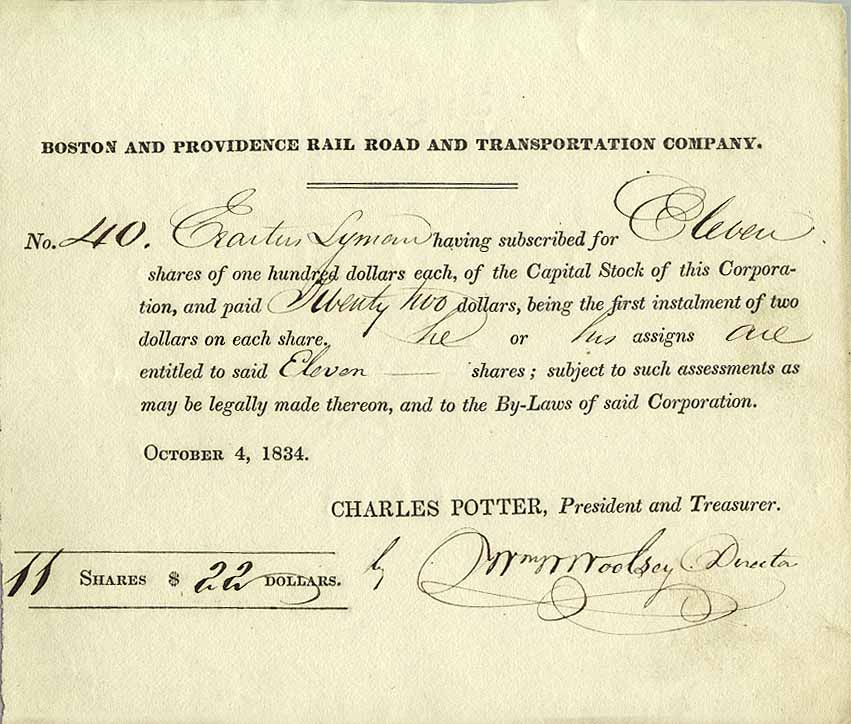 BOSTON AND PROVIDENCE RAIL ROAD AND TRANSPORTATION COMPANY.
No. 40. Erastus Lyman having subscribed for Eleven
shares of one hundred dollars each, of the Capital Stock of this Corpora-
tion, and paid Twenty two dollars, being the first instalment of two
dollars on each share. he or his assigns are
entitled to said Eleven — shares; subject to such assessments as
may be legally made thereon, and to the By-Laws of said Corporation.
OCTOBER 4, 1834.
CHARLES POTTER, President and Treasurer.
by Wm W Woolsey. Director
11 SHARES $ 22 DOLLARS.